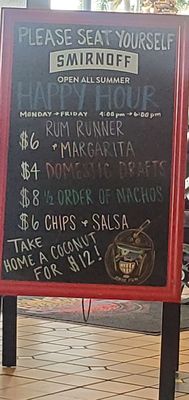 PLEASE SEAT YOURSELF
SMIRNOFF
OPEN ALL SUMMER
HAPPY HOUR
MONDAY → FRIDAY 4:00 pm → 6:00 pm
$6 RUM RUNNER
+ MARGARITA
$4 DOMESTIC DRAFTS
$8 ½ ORDER OF NACHOS
$6 CHIPS + SALSA
TAKE
HOME A COCONUT
FOR $12!